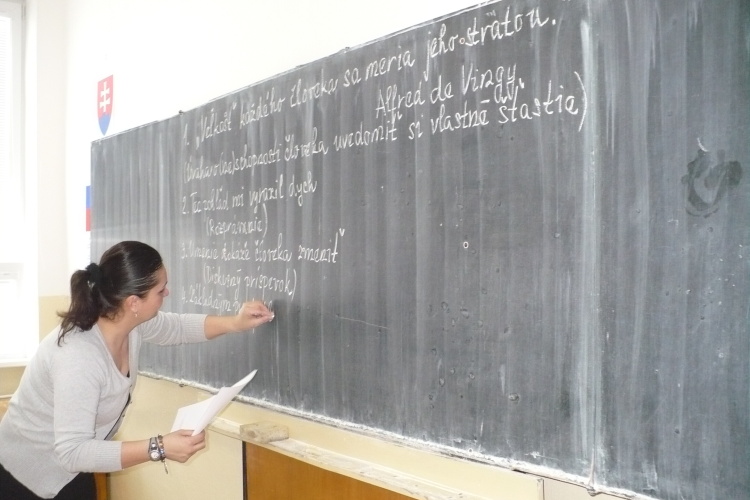 1. „Veľkosť" každého človeka sa meria jeho stratou.
Alfred de Vigny
(Úvaha o (ne)schopnosti človeka uvedomiť si vlastné šťastie)
2. Ten pohľad mi vyrazil dych
(Rozprávanie)
3. Umenie dokáže človeka zmeniť"
(Diskusný príspevok)
4. Základným